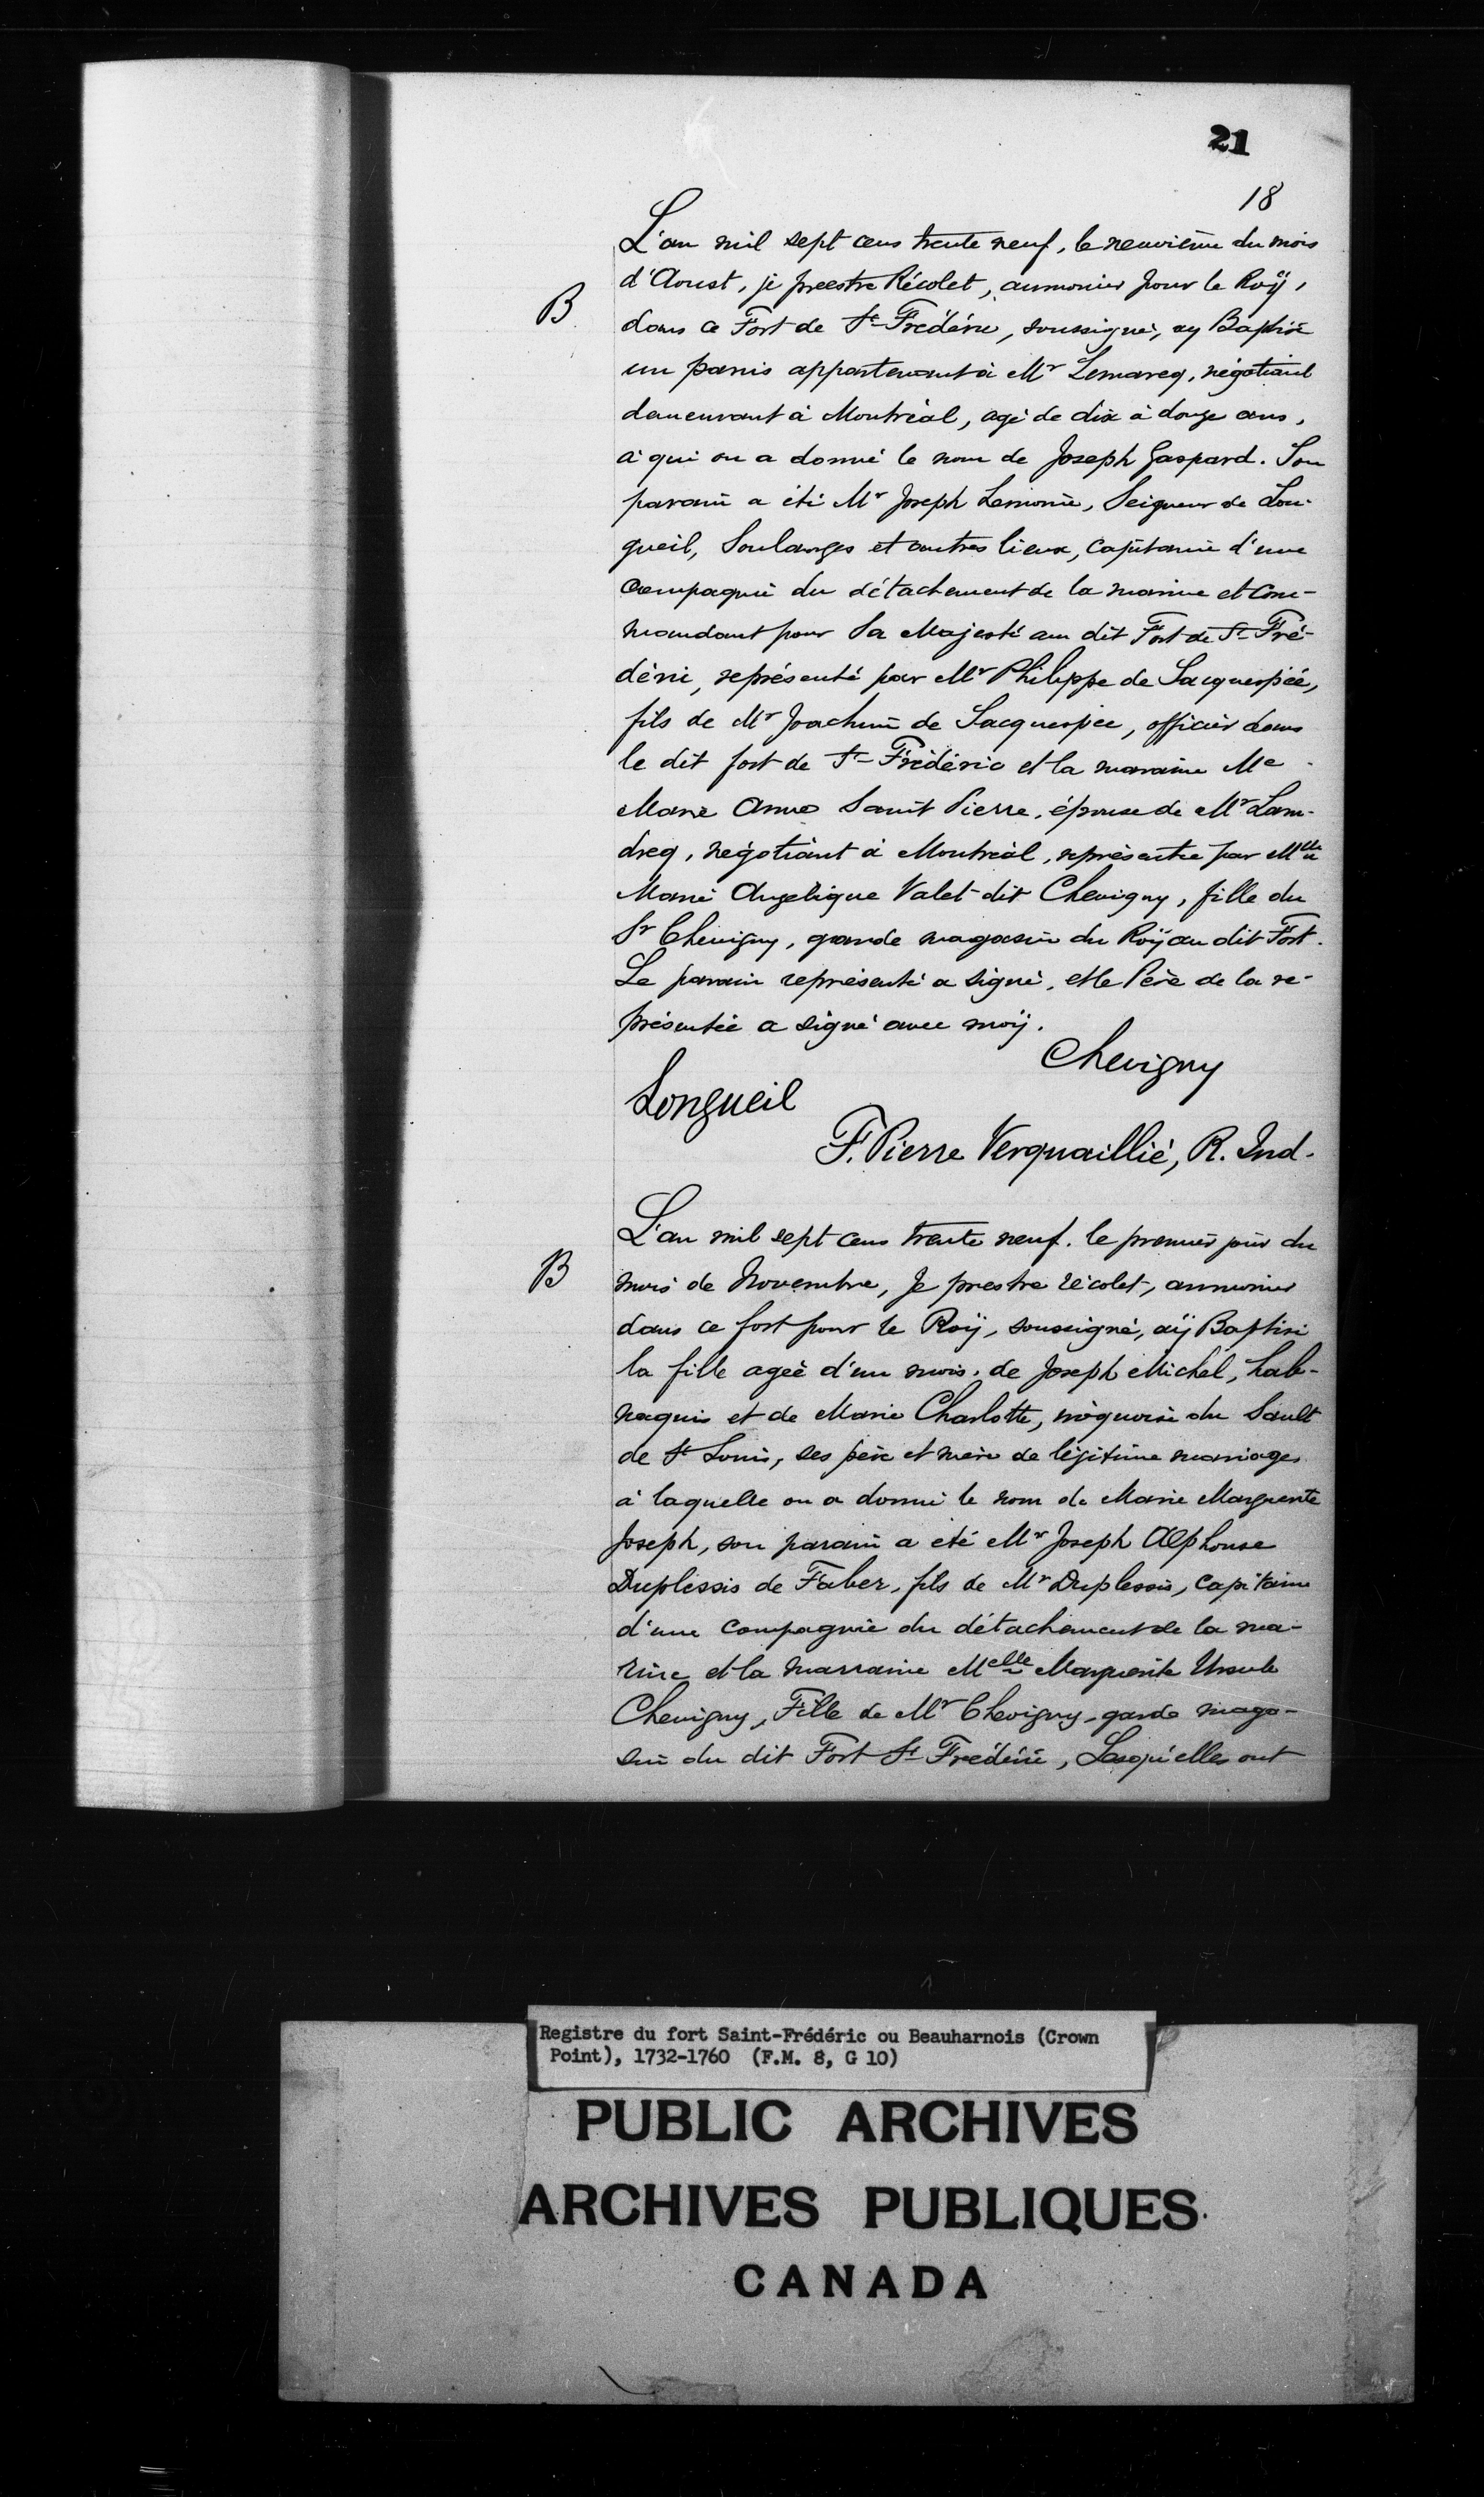 21
18
L'an mil sept cens trente neuf, le neuvième du mois
d'Aoust, je preestre Récolet, aumonier pour le Roÿ,
B
dans ce Fort de St Frédéric, soussigné, ay Baptisé
un panis appartenant à Mr Lemareq, négotiant
demeurant à Montréal, agé de dix à douze ans,
à qui on a donné le nom de Joseph Gaspard. Son
parain a été Mr Joseph Lemoine, Seigneur de Lon-
gueil, Soulanges et autres lieux, Capitaine d'une
Compagnie du détachement de la marine et Com-
mandant pour Sa Majesté au dit Fort de St Fré-
déric, représenté par Mr Philippe de Sacquespée,
fils de Mr Joachim de Sacquespée, officier dans
le dit fort de St Frédéric et la maraine Me
Marie Anne Saint Pierre, épouse de Mr Lam-
dreq, négotiant à Montréal, représentée par Melle
Marie Angelique Valet dit Chevigny, fille du
Sr Chevigny, garde magasin du Roÿ au dit Fort.
Le parain représenté a signé, et le Père de la re-
présentée a signé avec moÿ.
Chevigny
Longueil
F. Pierre Verquaillié, R. Ind.
L'an mil sept cens trente neuf. le premier jour du
B
mois de Novembre, Je prestre récolet, aumonier
dans ce fort pour le Roÿ, soussigné, aÿ Baptisé
la fille ageé d'un mois, de Joseph Michel, hab-
naquis et de Marie Charlotte, iroquoise du Sault
de St Louis, ses père et mère de légitime mariage,
à laquelle on a donné le nom de Marie Marguerite
Joseph, son parain a été Mr Joseph Alphonse
Duplessis de Faber, fils de Mr Duplessis, Capitaine
d'une Compagnie du détachement de la ma-
rine et la marraine Melle Marguerite Ursule
Chevigny, Fille de Mr Chevigny, garde maga-
sin du dit Fort St Frédéric, Lesquelles ont
Registre du fort Saint-Frédéric ou Beauharnois (Crown
Point), 1732-1760 (F.M. 8, G 10)
PUBLIC ARCHIVES
ARCHIVES PUBLIQUES
CANADA